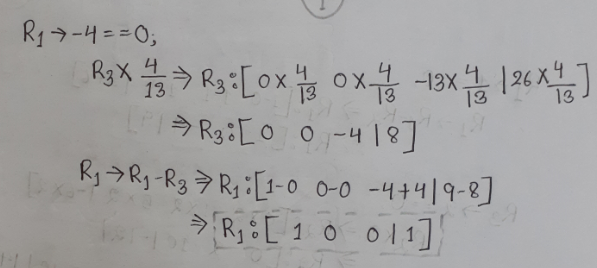 1
R₁ → -4 == 0;
R₃ × 4/13 ⇒ R₃:[0×4/13 0×4/13 -13×4/13 | 26×4/13]
⇒ R₃:[0 0 -4 | 8]
R₁ → R₁-R₃ ⇒ R₁:[1-0 0-0 -4+4 | 9-8]
⇒ R₁:[ 1 0 0 | 1 ]